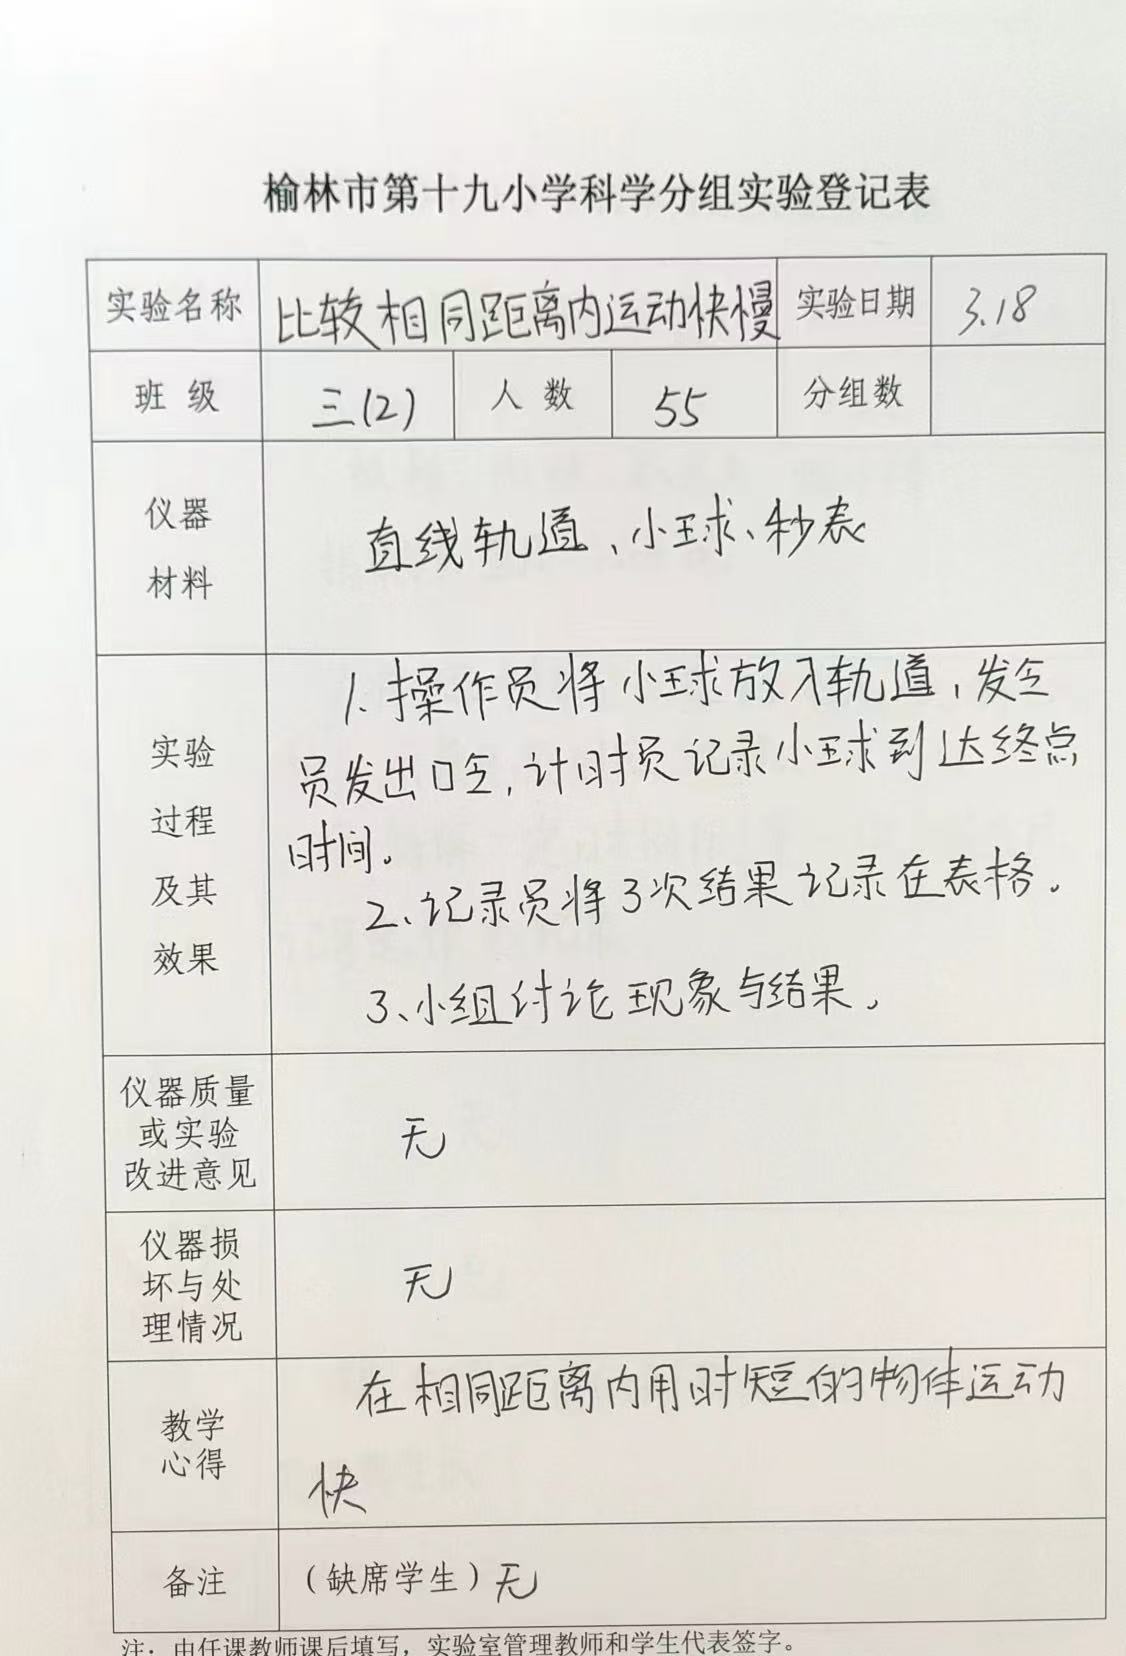 榆林市第十九小学科学分组实验登记表
实验名称 比较相同距离内运动快慢 实验日期 3.18
班 级 三(2) 人 数 55 分组数
仪器
材料
直线轨道、小球、秒表
实验
过程
及其
效果
1.操作员将小球放入轨道,发令
员发出口令,计时员记录小球到达终点
时间。
2、记录员将3次结果记录在表格。
3、小组讨论现象与结果。
仪器质量
或实验
改进意见
无
仪器损
坏与处
理情况
无
教学
心得
在相同距离内用时短的物体运动
快
备注 (缺席学生)无
注:由任课教师课后填写,实验室管理教师和学生代表签字。